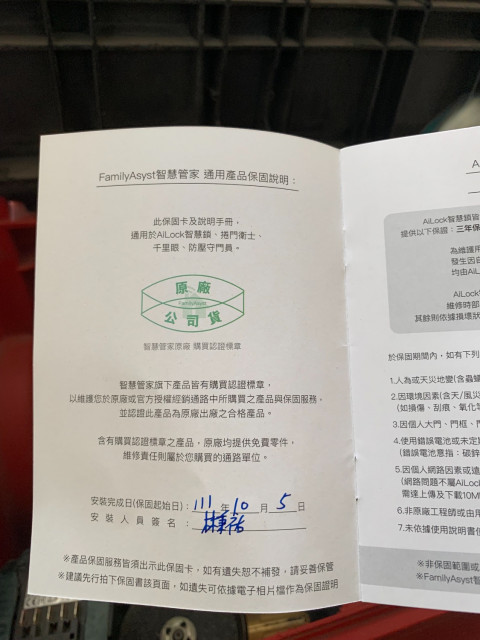 FamilyAsyst智慧管家 通用產品保固說明：
此保固卡及說明手冊，
通用於AiLock智慧鎖、捲門衛士、
千里眼、防壓守門員。
原廠
FamilyAsyst
公司貨
智慧管家原廠 購買認證標章
智慧管家旗下產品皆有購買認證標章，
以維護您於原廠或官方授權經銷通路中所購買之產品與保固服務，
並認證此產品為原廠出廠之合格產品。
含有購買認證標章之產品，原廠均提供免費零件，
維修責任則屬於您購買的通路單位。
安裝完成日(保固起始日)：111年10月5日
安裝人員簽名：
※產品保固服務皆須出示此保固卡，如有遺失恕不補發，請妥善保管
※建議先行拍下保固書該頁面，如遺失可依據電子相片檔作為保固證明
A
AiLock智慧鎖皆
提供以下保證：三年保
為維護用
發生因自
均由AiL
AiLock
維修時部
其餘則依據損壞狀
於保固期間內，如有下列
1.人為或天災地變(含蟲蟻
2.因環境因素(含天/風災
(如損傷、刮痕、氧化等
3.因個人大門、門框、門
4.使用錯誤電池或未定期
(錯誤電池意指：碳鋅
5.因個人網路因素或遠
(網路問題不屬AiLoc
需達上傳及下載10M
6.非原廠工程師或由用
7.未依據使用說明書使
※非保固範圍或
※FamilyAsyst智